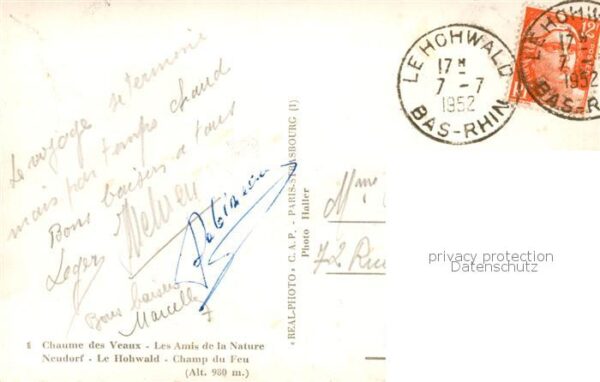 Le voyage se termine
mais par temps chaud
Bons baisers à tous
Leger
Bons baisers
Marcelle
1 Chaume des Veaux - Les Amis de la Nature
Neudorf - Le Hohwald - Champ du Feu
(Alt. 980 m.)
"REAL-PHOTO" C.A.P. - PARIS-STRASBOURG (1)
Photo Haller
Mme
72 Rue
LE HOHWALD
17 H
7 - 7
1952
BAS-RHIN
12F
LE HOHW
17 H
7 -
1952
BAS-R
privacy protection
Datenschutz